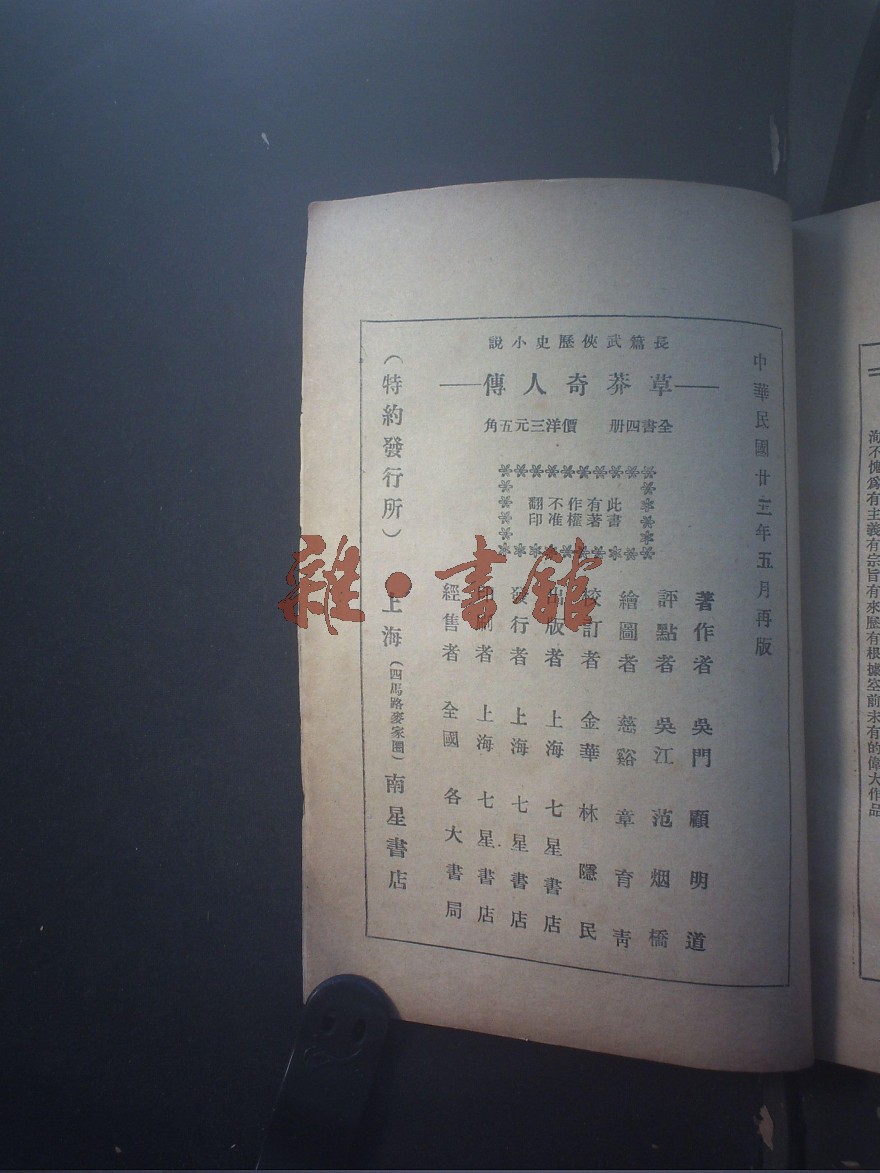 洵不愧爲有主義有宗旨有來歷有根據空前未有的偉大作品
中華民國廿三年五月再版
長篇武俠歷史小說
草莽奇人傳
全書四册 價洋三元五角
此書
有著
作權
不准
翻印
著作者 吳門 顧明道
評點者 吳江 范烟橋
繪圖者 慈谿 章育青
校訂者 金華 林隱民
出版者 上海 七星書店
發行者 上海 七星書店
印刷者 上海 七星書店
經售者 全國 各大書局
（特約發行所） 上海（四馬路麥家圈）南星書店
雜·書館